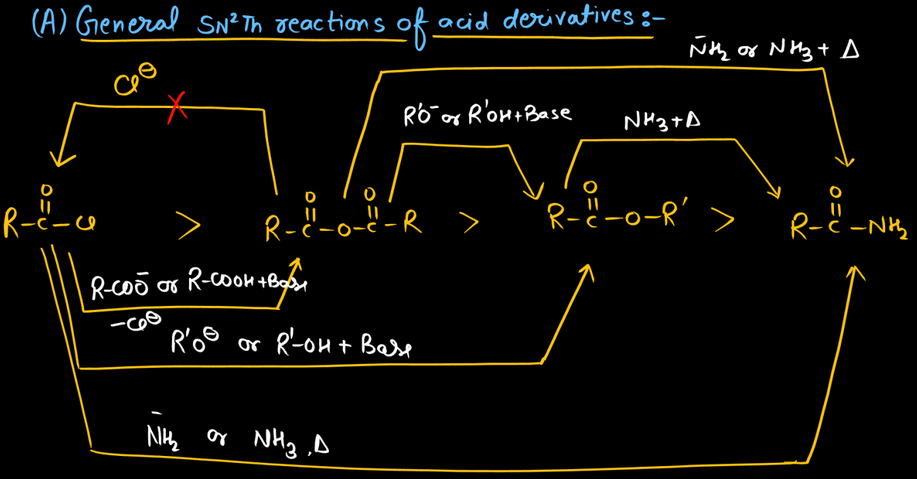 (A) General SN²Th reactions of acid derivatives :-
N̄H₂ or NH₃ + Δ
Cl⊖
R'O⁻ or R'OH + Base
NH₃ + Δ
O O O O O
|| || || || ||
R-C-Cl > R-C-O-C-R > R-C-O-R' > R-C-NH₂
R-COO⁻ or R-COOH + Base
-Cl⊖
R'O⊖ or R'-OH + Base
N̄H₂ or NH₃, Δ